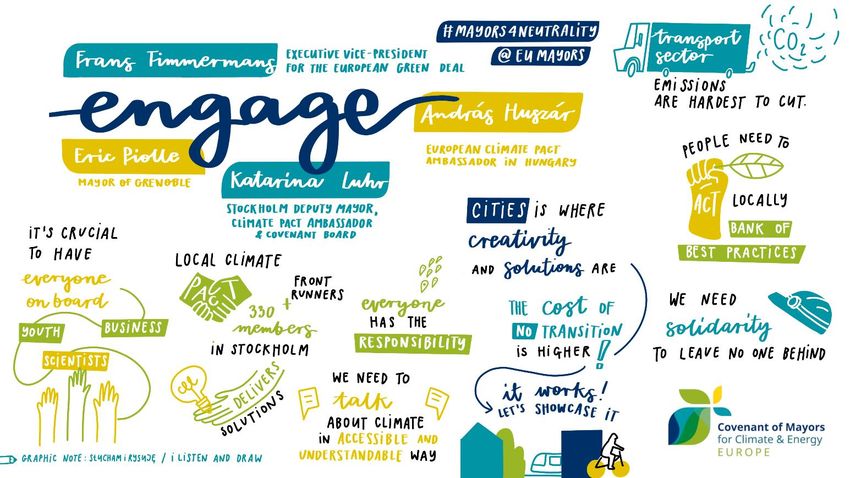 Frans Timmermans
EXECUTIVE VICE-PRESIDENT
FOR THE EUROPEAN GREEN DEAL
#MAYORS4NEUTRALITY
@EUMAYORS
transport
sector
CO2
EMISSIONS
ARE HARDEST TO CUT.
engage
András Huszár
EUROPEAN CLIMATE PACT
AMBASSADOR IN HUNGARY
Eric Piolle
MAYOR OF GRENOBLE
Katarina Luhr
STOCKHOLM DEPUTY MAYOR,
CLIMATE PACT AMBASSADOR
& COVENANT BOARD
PEOPLE NEED TO
ACT
LOCALLY
BANK OF
BEST PRACTICES
IT'S CRUCIAL
TO HAVE
everyone
on board
YOUTH
BUSINESS
SCIENTISTS
LOCAL CLIMATE
PACT
330+
members
FRONT
RUNNERS
IN STOCKHOLM
DELIVERS
SOLUTIONS
everyone
HAS THE
RESPONSIBILITY
WE NEED TO
talk
ABOUT CLIMATE
IN ACCESSIBLE AND
UNDERSTANDABLE WAY
CITIES IS WHERE
creativity
AND solutions ARE
THE cost OF
NO TRANSITION
IS HIGHER!
it works!
LET'S SHOWCASE IT
WE NEED
solidarity
TO LEAVE NO ONE BEHIND
Covenant of Mayors
for Climate & Energy
EUROPE
GRAPHIC NOTE: SŁUCHAM I RYSUJĘ / I LISTEN AND DRAW